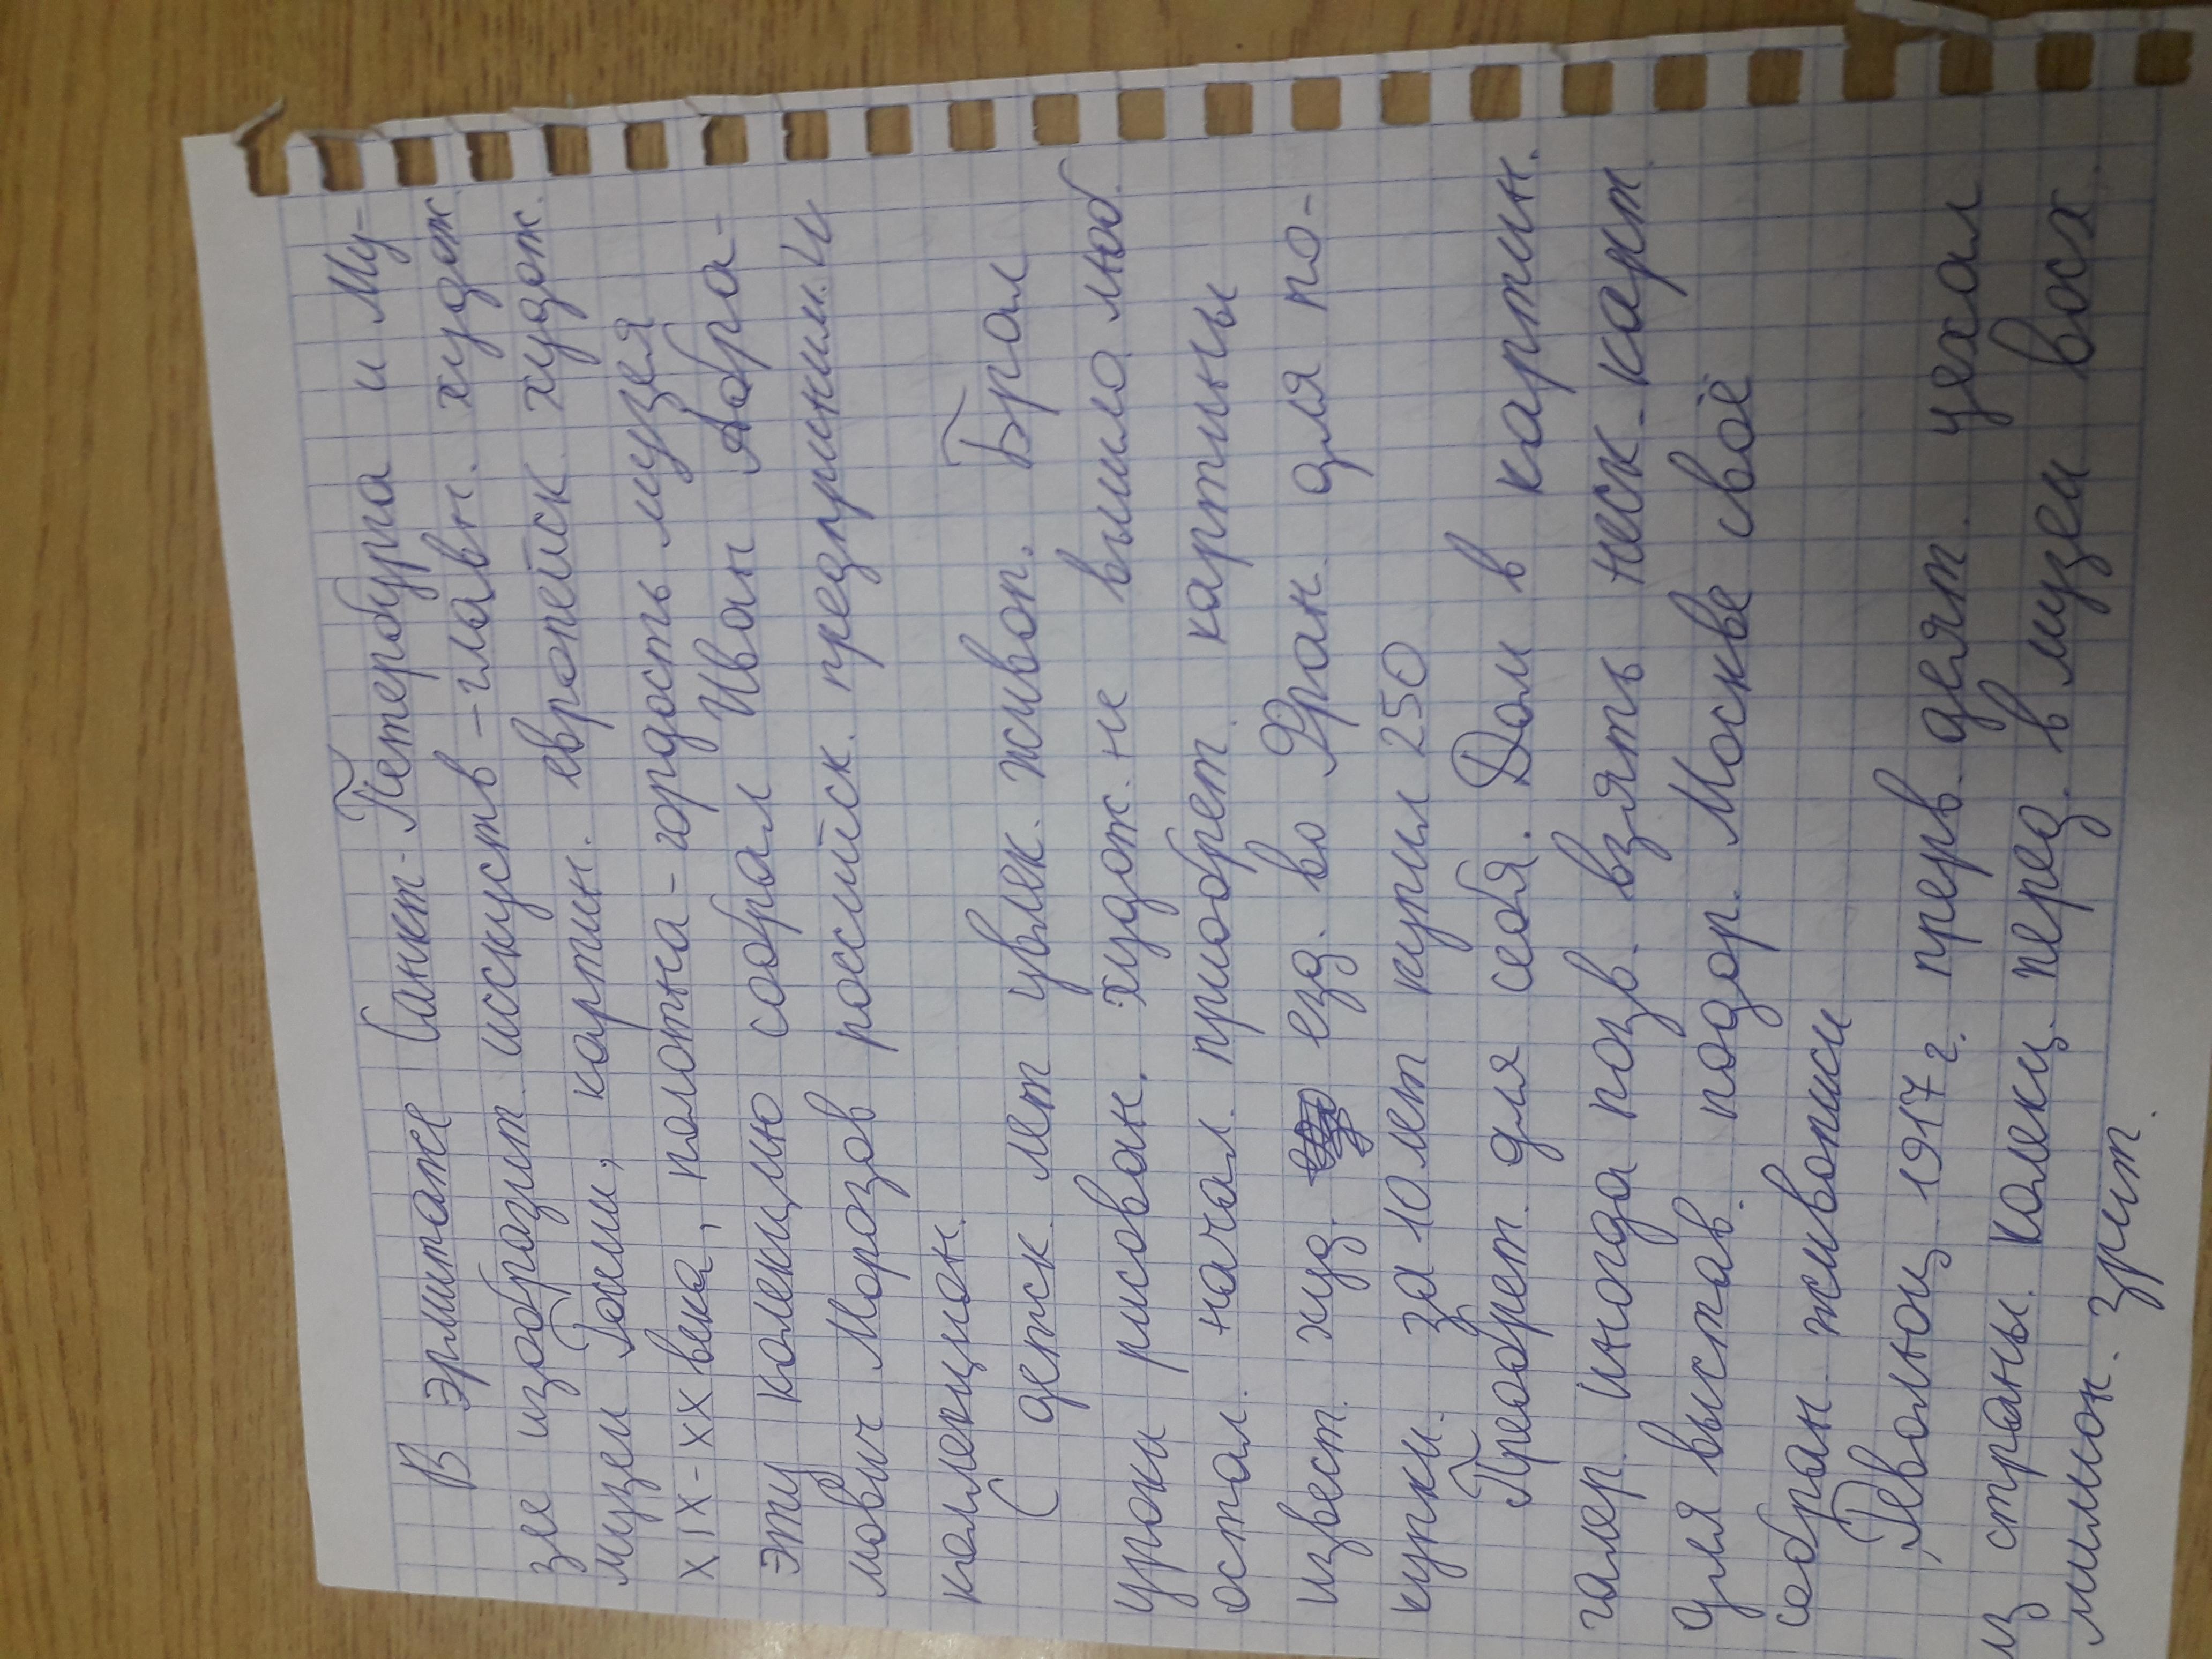 В Эрмитаже Санкт-Петербурга и Му-
зее изобразит. искуств - главн. худож
музеи России, картин. европейск. худож.
XIX-XX века, полотна - гордость музея
эту колекцию собрал Иван Абра-
мович Морозов российск. предприним. и
коллекцион.
С детск. лет увлек. живоп. Брал
уроки рисован. худож. не вышло люб.
остал. начал приобрет. картины
извест. худ. езд. во Фран. для по-
купки. за 10 лет купил 250
Преобрет. для себя. Дом в картин.
галер. Иногда позв. взять неск. карт.
для выстав. подор. Москве своё
собран живописи
Револющ 1917 г. прерв. деят. уехал
из страны. колекц. перед. в музеи восх.
милион. зрит.